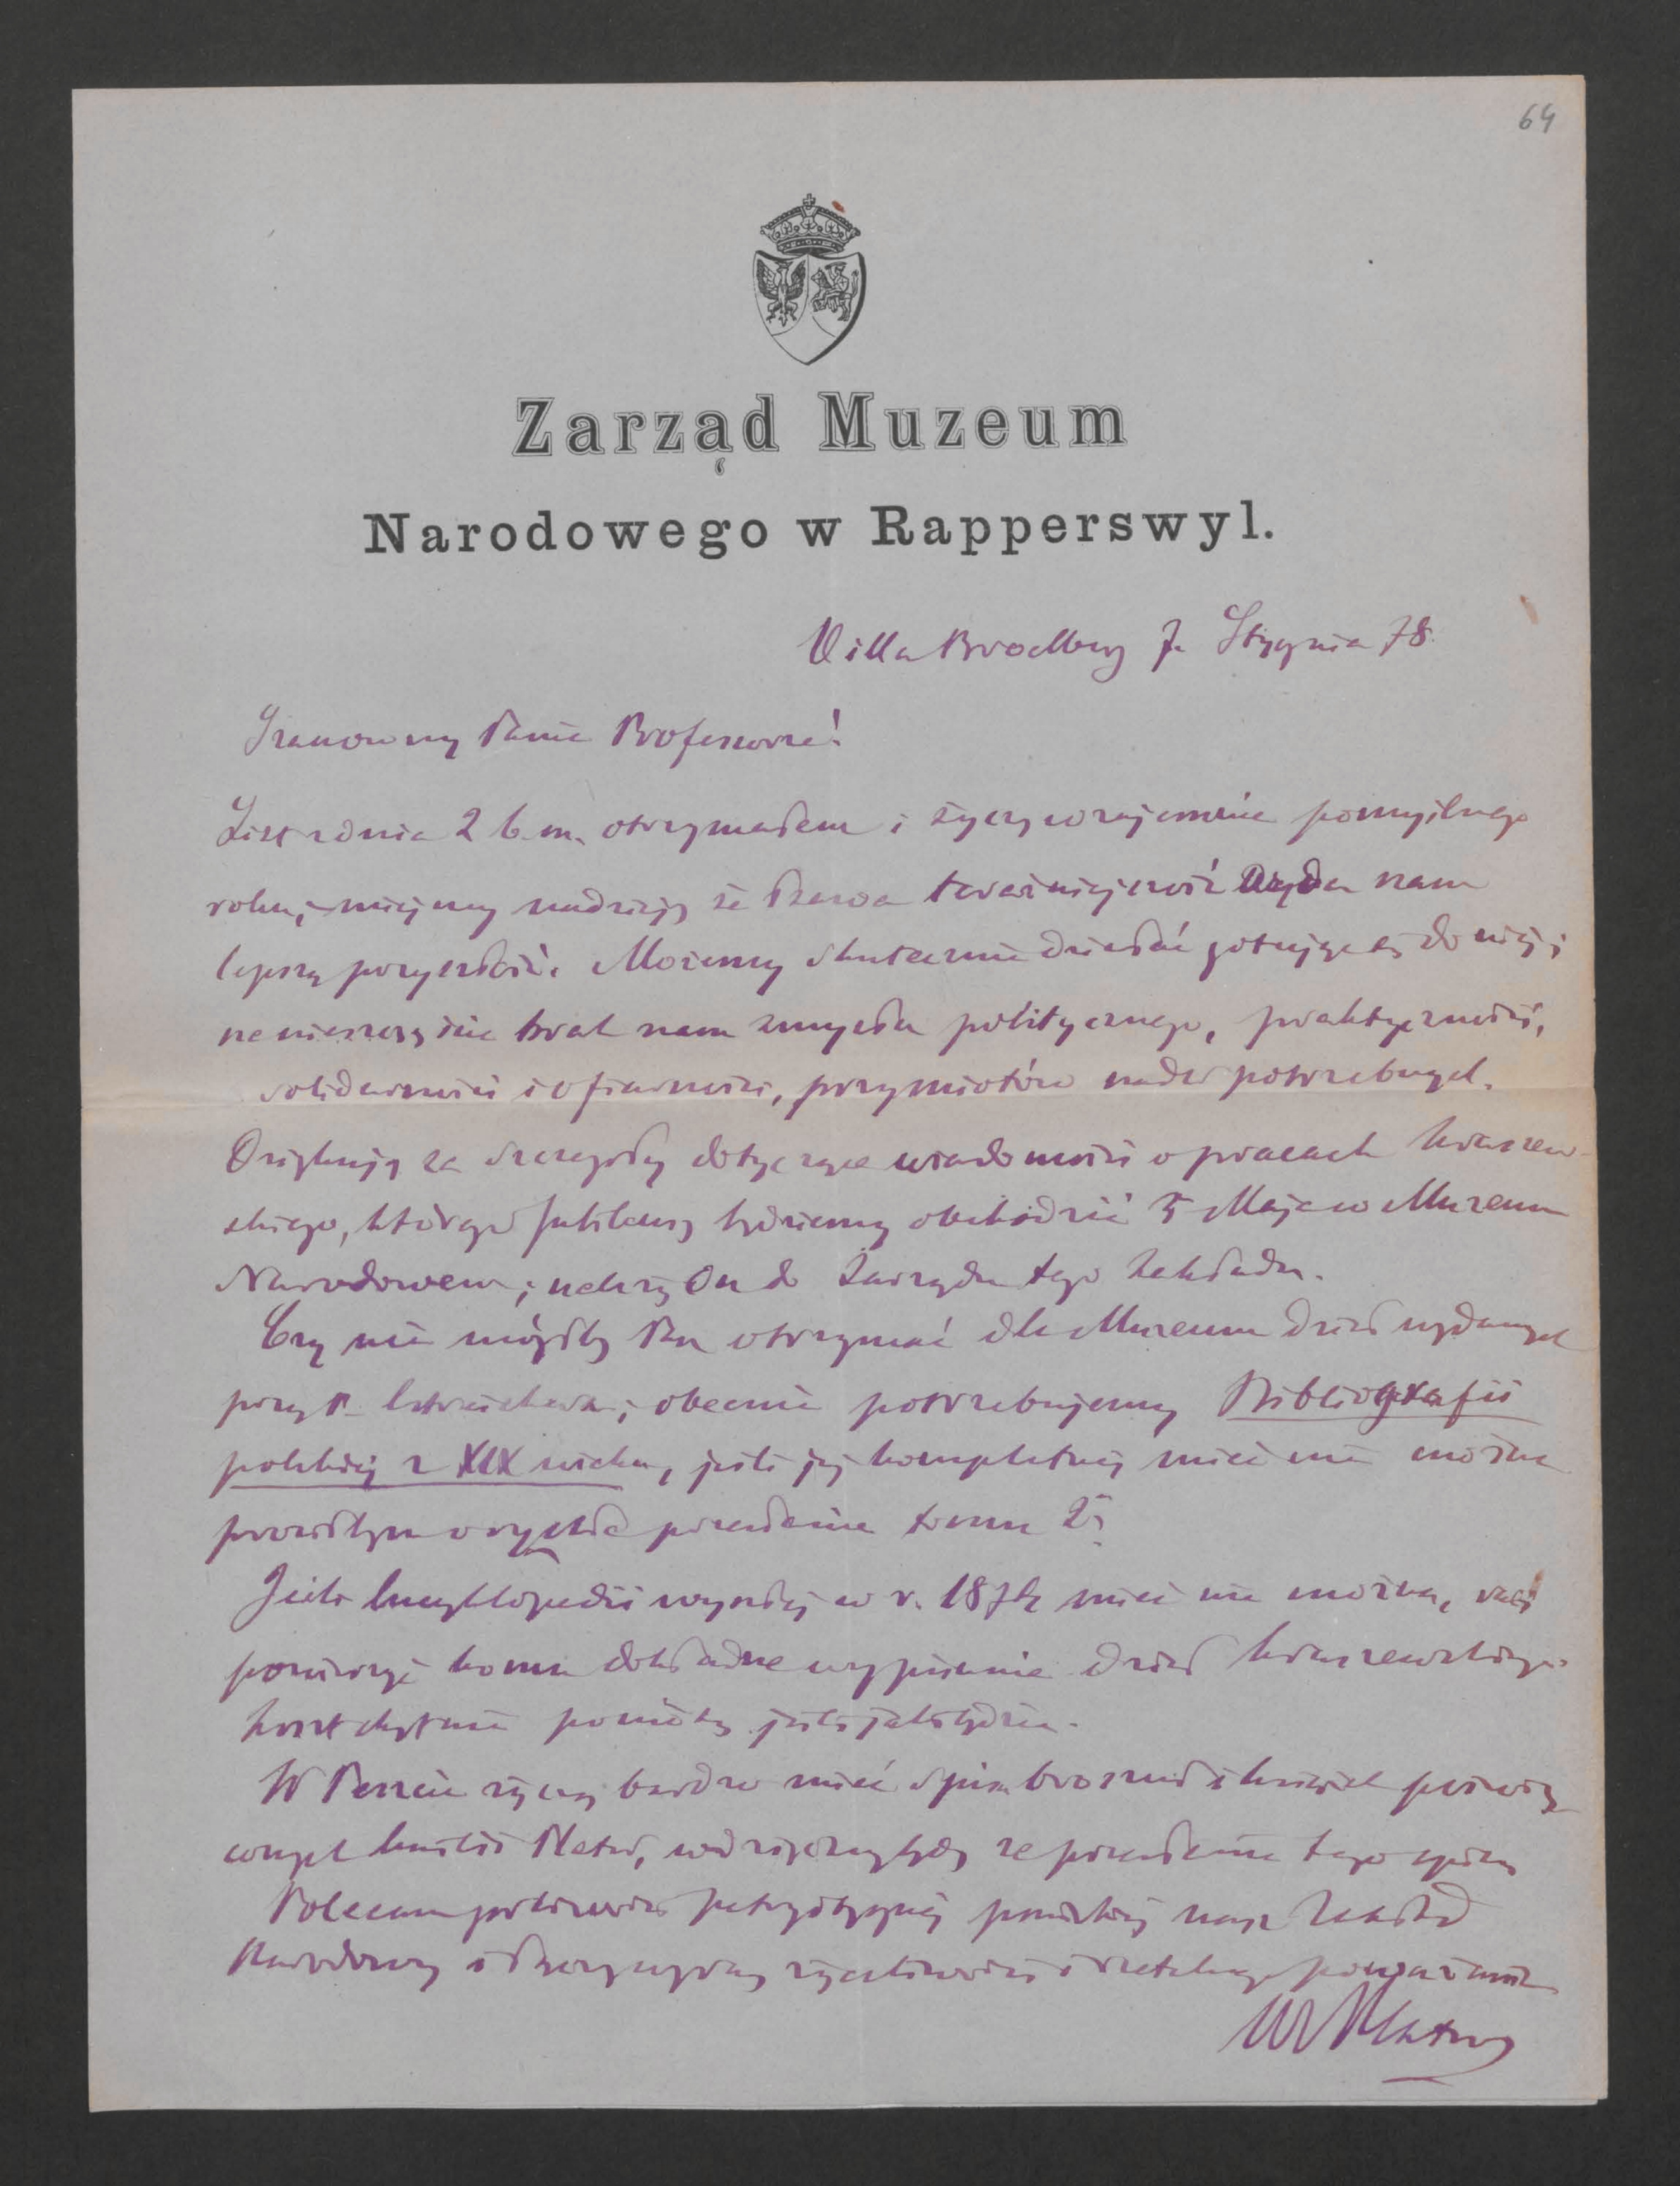 64
Zarząd Muzeum
Narodowego w Rapperswyl.
Villa Broelberg 7. Stycznia 78.
Szanowny Panie Profesorze!
List z dnia 2 b.m. otrzymałem i życzę wzajemnie pomyślnego
roku, miejmy nadzieję że teraźniejszość nam
lepszą przyszłość. Możemy skutecznie działać gotując się do niej i
na nieszczęście brak nam zmysłu politycznego, praktyczności,
solidarności i ofiarności, przymiotów nader potrzebnych.
Dziękuję za szczegóły dotyczące wiadomości o pracach Kraszew-
skiego, którego Jubileusz będziemy obchodzić 3 Maja w Muzeum
Narodowem; należy On do Zarządu tego Zakładu.
Czy nie mógłby Pan otrzymać dla Muzeum dzieł wydanych
przez P. Estreichera; obecnie potrzebujemy Bibliografii
polskiej z XIX wieku, jeśli jej kompletnej mieć nie można
prosiłbym o rychłe przesłanie tomu 2
Jeśli Encyklopedii wyszłej w r. 187 mieć nie można,
komu dokładne wypisanie dzieł Kraszewskiego
koszt chętnie jeśli jaki będzie.
W życzę bardzo mieć spis broszur i książek poświę-
conych Emilii Plater, wdzięczny będę za przesłanie tego spisu
Polecam patriotycznej nasz Zakład
Narodowy i życzliwości i poważanie
Wł Plater